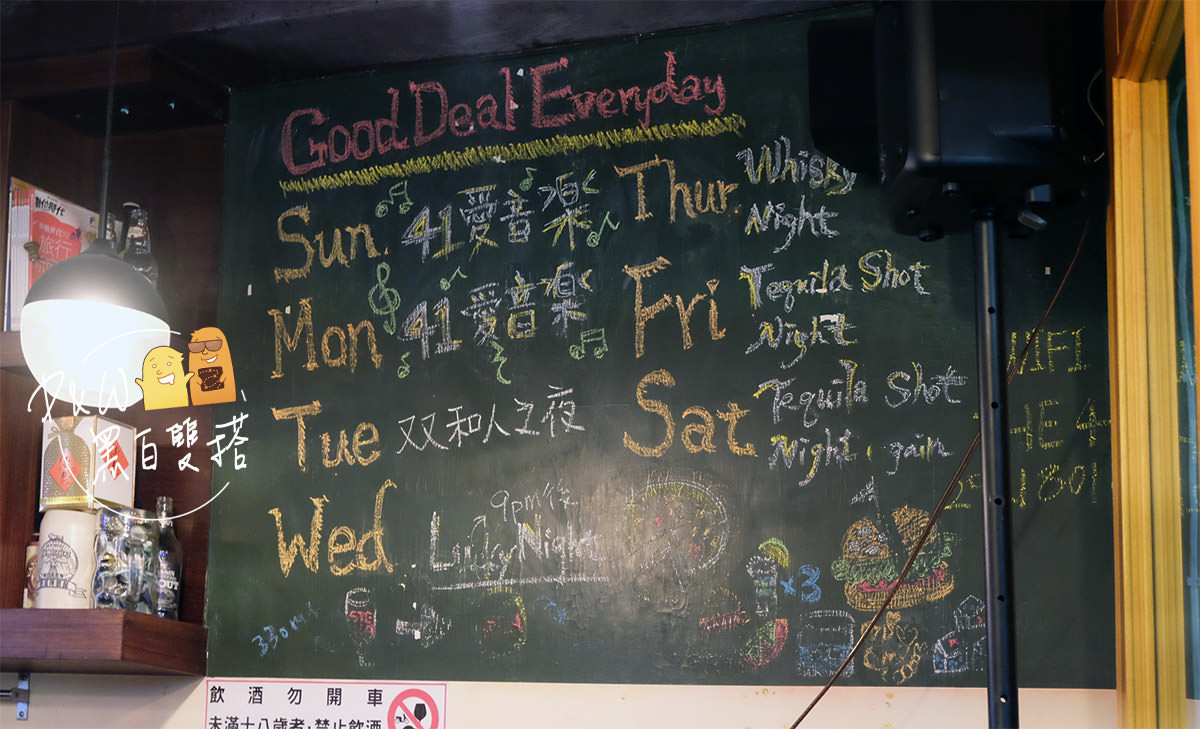 Good Deal Everyday
Sun. 41愛音樂
Mon 41愛音樂
Tue 双和人之夜
Wed 9pm後
Lucky Night
Thur. Whisky
Night
Fri Tequila Shot
Night
Sat Tequila Shot
Night
x3
330ml
WIFI
數位時代
旅行
B&W
黑白雙搭
飲酒勿開車
未滿十八歲者,禁止飲酒